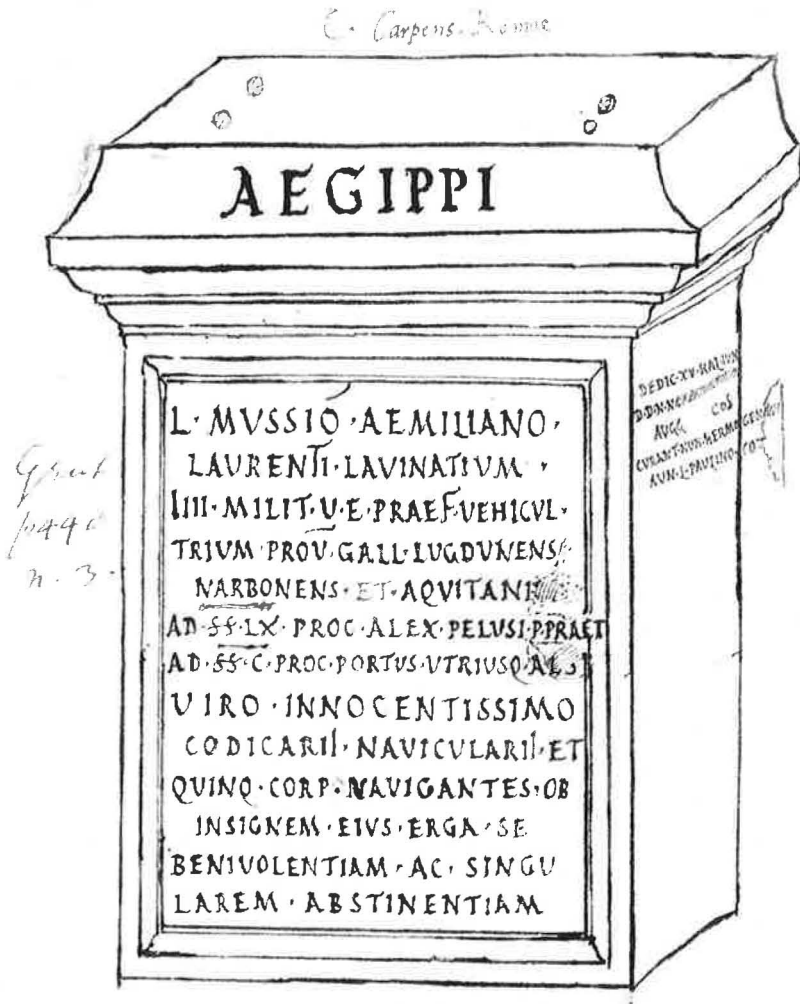 C. Carpens. Romae
AEGIPPI
L · MVSSIO · AEMILIANO ·
LAURENTI · LAVINATIVM ·
IIII · MILIT · V · E · PRAEF · VEHICVL ·
TRIVM · PROV · GALL · LUGDVNENS
NARBONENS · ET · AQVITANI
AD · SS · LX · PROC · ALEX · PELUSI · P · PRAET
AD · SS · C · PROC · PORTVS · VTRIVSQ · AL
VIRO · INNOCENTISSIMO
CODICARII · NAVICULARII · ET
QUINQ · CORP · NAVIGANTES · OB
INSIGNEM · EIVS · ERGA · SE
BENIVOLENTIAM · AC · SINGU
LAREM · ABSTINENTIAM
DEDIC · XV · KAL · IVN
D · D · N · N ·
AVGG COS
CURANT · NVN · HERMOGENE
AVN · L · PAVLINO ·
Grut
p. 440
n. 3.